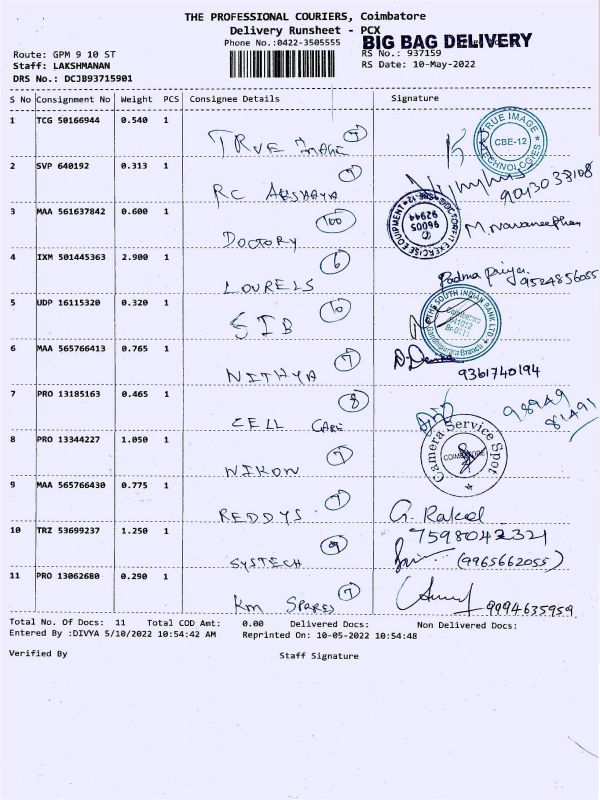 THE PROFESSIONAL COURIERS, Coimbatore
Delivery Runsheet - PCX
Phone No.:0422-3505555
BIG BAG DELIVERY
Route: GPM 9 10 ST
RS No.: 937159
Staff: LAKSHMANAN
RS Date: 10-May-2022
DRS No.: DCJB93715901
S No Consignment No Weight PCS Consignee Details Signature
1 TCG 50166944 0.540 1 TRUE IMAGE
TRUE IMAGE TECHNOLOGIES CBE-12
2 SVP 640192 0.313 1 RC AKSHAYA 7
3 MAA 561637842 0.600 1 DOCTORY 100
96005 92944
M Navaneethan
4 IXM 501445363 2.900 1 LOURELS 6
Padma Priya 9524856055
5 UDP 16115320 0.320 1 SIB 10
THE SOUTH INDIAN BANK LTD Coimbatore Gandhipuram Branch
6 MAA 565766413 0.765 1 NITHYA 7
9361740194
7 PRO 13185163 0.465 1 CELL CARE 8
98949 81491
8 PRO 13344227 1.050 1 NIKON 7
Camera Service Spot COIMBATORE
9 MAA 565766430 0.775 1 REDDYS 7
10 TRZ 53699237 1.250 1 SYSTECH 9
7598042321
(9965662055)
11 PRO 13062680 0.290 1 Km SPARES 7
9994635959
Total No. Of Docs: 11 Total COD Amt: 0.00 Delivered Docs: Non Delivered Docs:
Entered By :DIVYA 5/10/2022 10:54:42 AM Reprinted On: 10-05-2022 10:54:48
Verified By Staff Signature